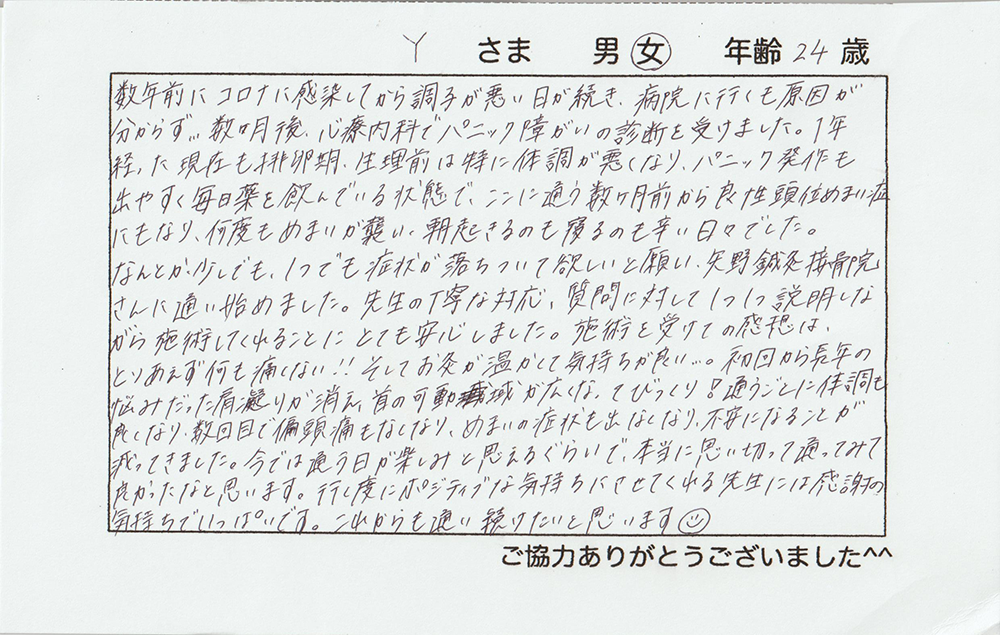 Y さま 男 女 年齢 24 歳
数年前にコロナに感染してから調子が悪い日が続き、病院に行くも原因が
分からず… 数ヶ月後、心療内科でパニック障がいの診断を受けました。1年
経った現在も排卵期、生理前は特に体調が悪くなり、パニック発作も
出やすく毎日薬を飲んでいる状態で、ここに通う数ヶ月前から良性頭位めまい症
にもなり、何度もめまいが襲い、朝起きるのも寝るのも辛い日々でした。
なんとか少しでも、1つでも症状が落ちついて欲しいと願い、矢野鍼灸接骨院
さんに通い始めました。先生の丁寧な対応、質問に対して1つ1つ説明しな
がら施術してくれることにとても安心しました。施術を受けての感想は、
とりあえず何も痛くない!! そしてお灸が温かくて気持ちが良い…。初回から長年の
悩みだった肩凝りが消え、首の可動域が広くなってびっくり!通うごとに体調も
良くなり、数回目で偏頭痛もなくなり、めまいの症状も出なくなり、不安になることが
減ってきました。今では通う日が楽しみと思えるぐらいで、本当に思い切って通ってみて
良かったなと思います。行く度にポジティブな気持ちにさせてくれる先生には感謝の
気持ちでいっぱいです。これからも通い続けたいと思います
ご協力ありがとうございました^^